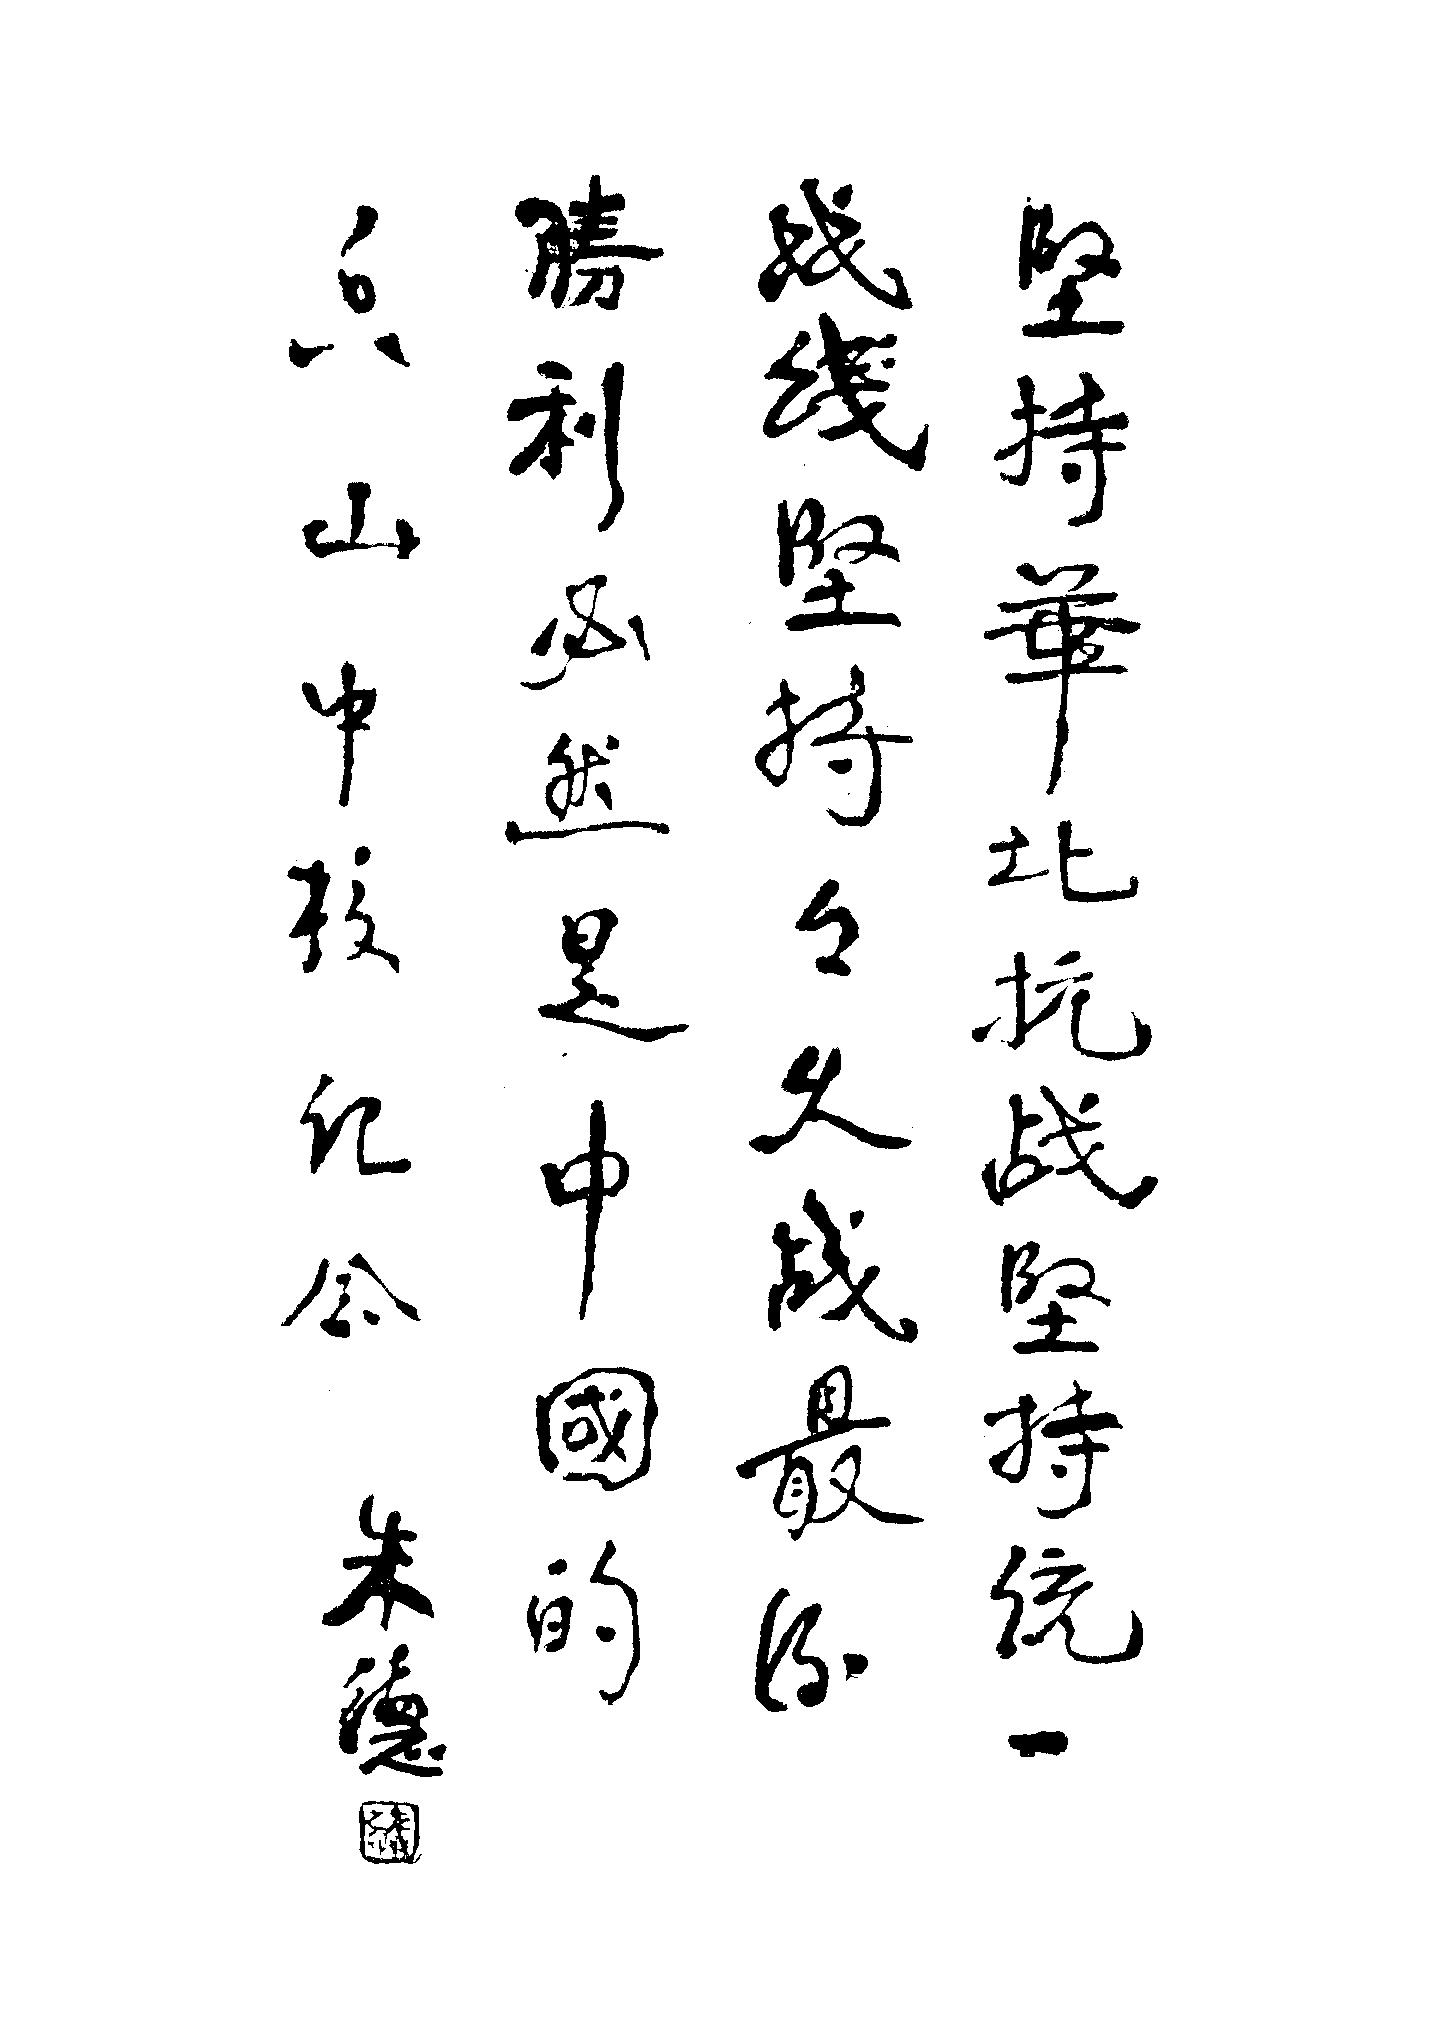 坚持華北抗战坚持统一
战线坚持々久战最後
勝利必然是中國的
兵山中校记念 朱德